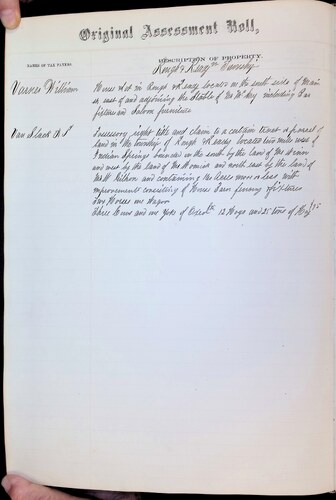 Original Assessment Roll,
NAMES OF TAX PAYERS.
DESCRIPTION OF PROPERTY.
Rough & Ready Township
William
House & Lot in Rough & Ready located on the south side of Main
st east of and adjoining the Stable of including Bar
fixtures and Saloon furniture
Van Slack
Possessory right title and claim to a certain tract or parcel of
land in the township of Rough & Ready located two miles west of
Indian Springs bounded on the south by the land of
and west by the land of and north east by the land of
and containing 160 Acres more or less, with
improvements consisting of House Barn fencing & fixtures
Two Horses one Wagon
Three Cows and one Yoke of Oxen 12 Hogs and 25 tons of Hay